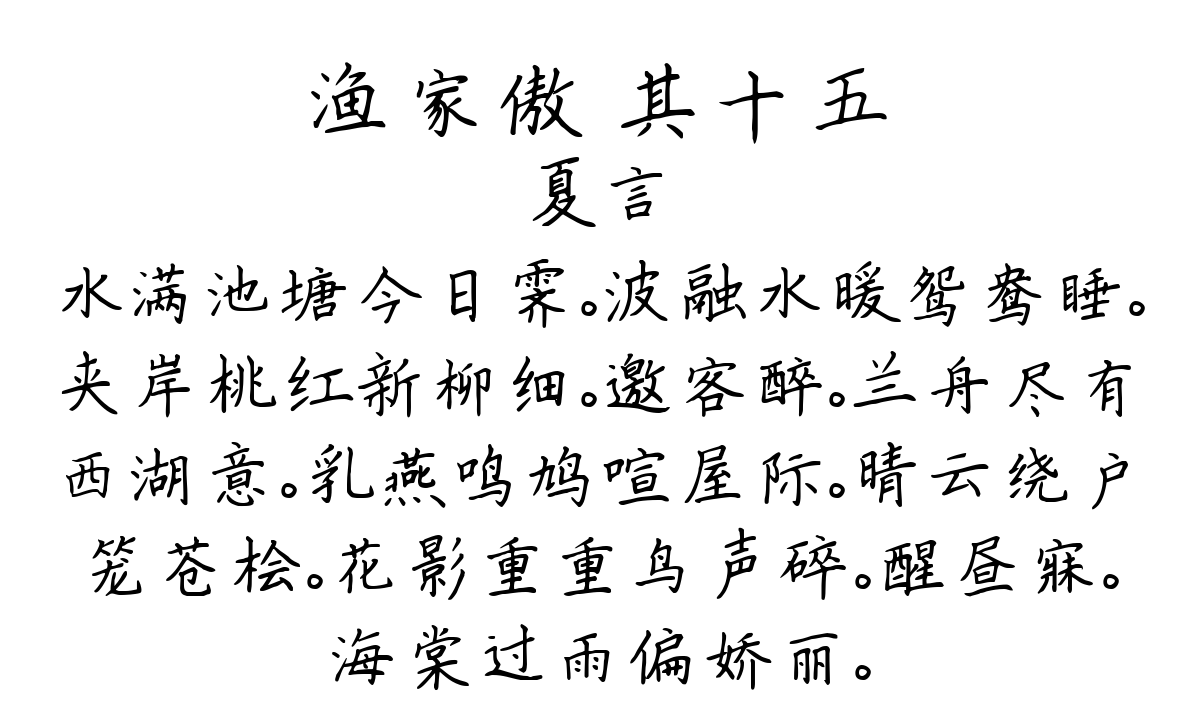 渔家傲 其十五
夏言
水满池塘今日霁。波融水暖鸳鸯睡。
夹岸桃红新柳细。邀客醉。兰舟尽有
西湖意。乳燕鸣鸠喧屋际。晴云绕户
笼苍桧。花影重重鸟声碎。醒昼寐。
海棠过雨偏娇丽。